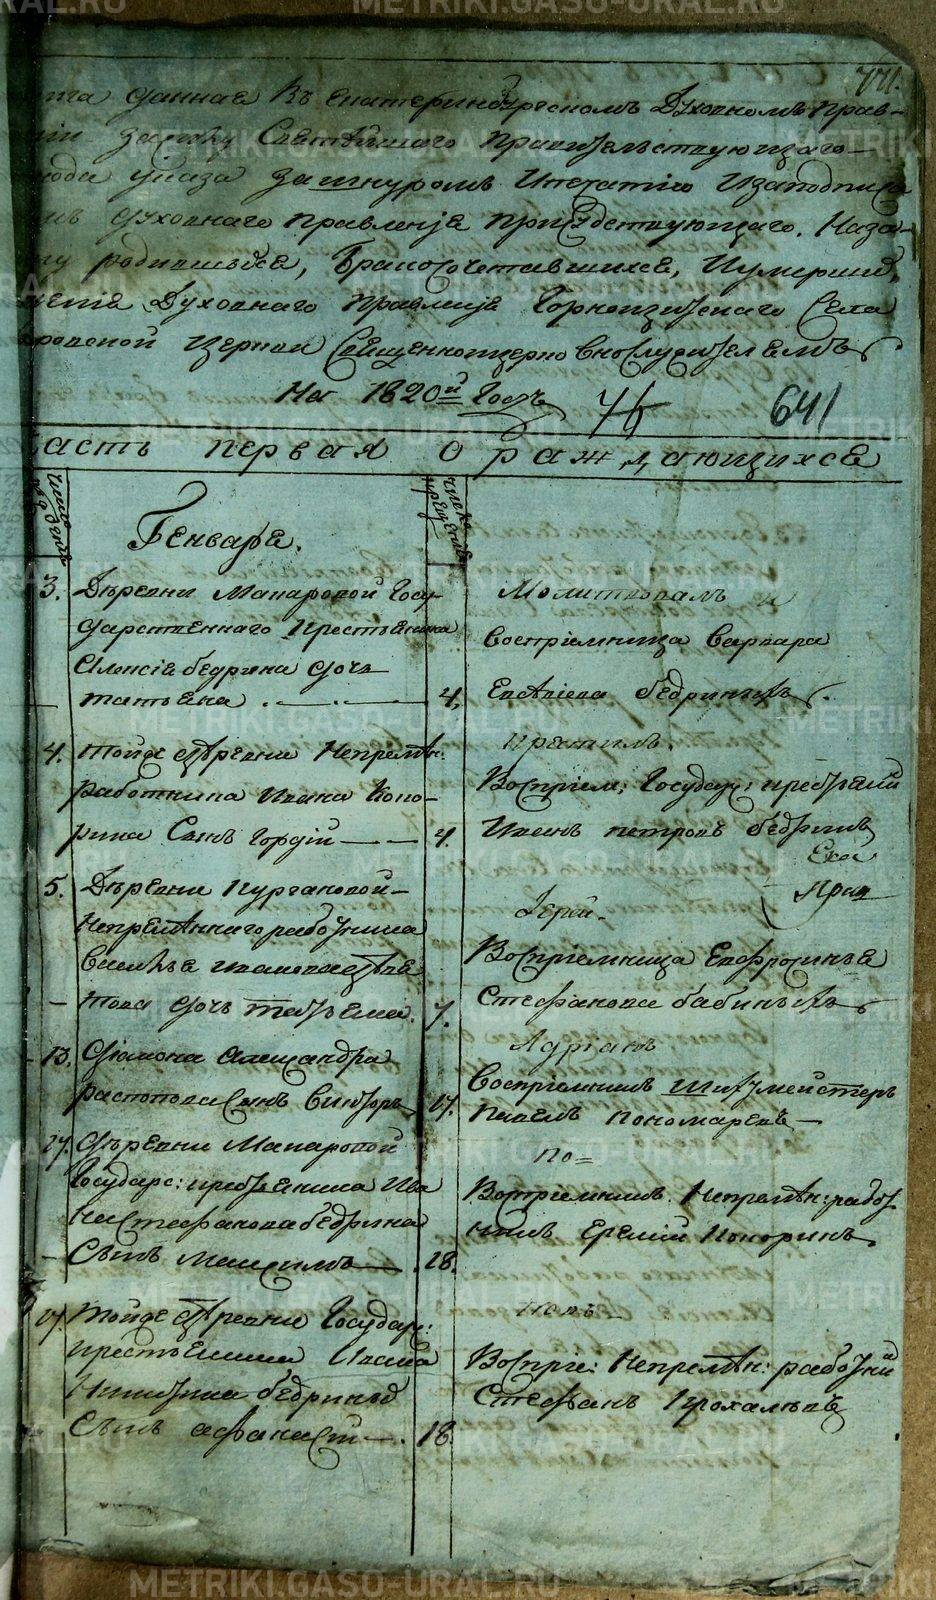 METRIKI.GASO-URAL.RU
771.
данная въ Екатеринбургскомъ Духовномъ Прав-
силу Святѣйшаго Правительствующаго
указа за шнуромъ и печатию и заподписа
духовнаго правленія присудствующаго. Наза-
родившыхся, Бракосочетавшихся, Иумерших,
Духовнаго правленія Горнощитскаго Села
церкви Священноцерковнослужителемъ
На 1820й Годъ 641
часть первая о раждающихся
число рожденія
число крещенія
Генваря.
3. Дѣревни Макаровой Госу-
дарственнаго крестьянина
Алексія бѣдрина дочь
татьяна 4.
Молитвовалъ и
восприемница варвара
бѣдриныхъ.
4. тойже дѣревни Непремѣн:
работника Ивана Коко-
рина Сынъ Гордій 4.
крестилъ.
Восприем: Государ: крестьянин
Иванъ петровъ бѣдринъ
5. Дѣревни Кургановой
Непремѣннаго работника
дочь татьяна. 7.
Іерей
Восприемница Евфросинья
Стефанова бабиныхъ
13. дьякона Александра
распопова сынъ викторъ 17.
Адріанъ
Восприемникъ Шихтмейстеръ
Павелъ пономаревъ
27. дѣревни Макаровой
Государс: крестьянина Ива
на Стефанова бѣдрина
Сынъ Максимъ 28.
По=
Восприемникъ Непремѣн: работ
никъ Еремій Кокоринъ
17. тойже дѣревни Государ:
крестьянина Ивана
Никитина бѣдриныхъ
Сынъ афанасій 18.
повъ
Восприе: Непремѣн: работни
Стефанъ Крохалевъ
METRIKI.GASO-URAL.RU